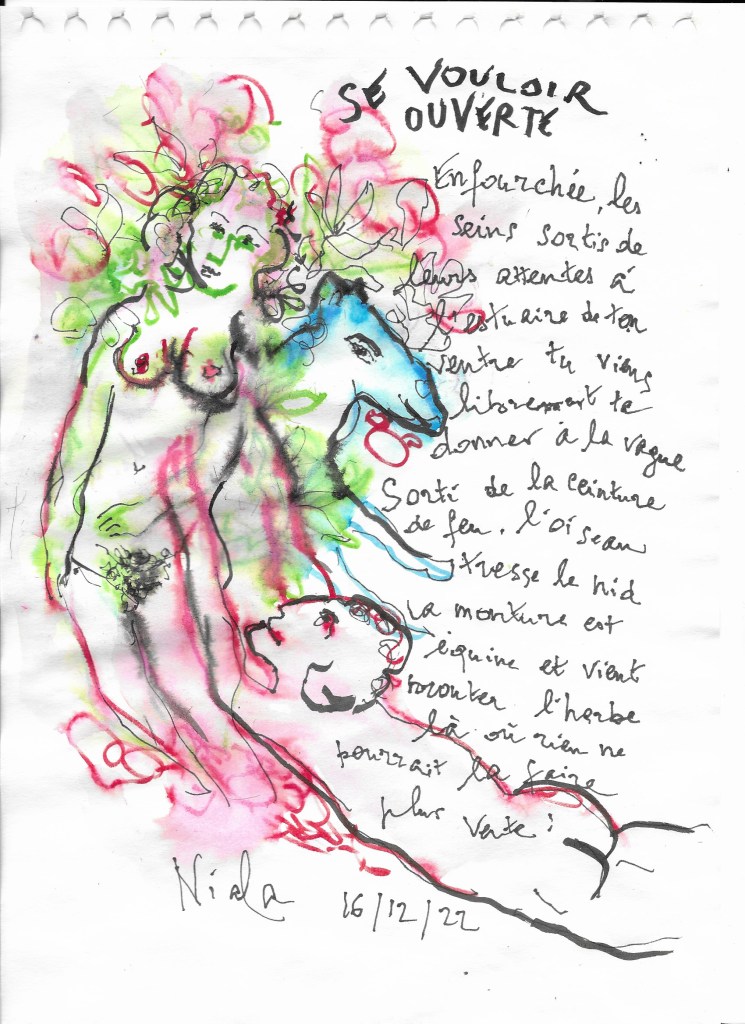 SE VOULOIR
OUVERTE
Enfourchée, les
seins sortis de
leurs attentes à
l'estuaire de ton
ventre tu viens
librement te
donner à la vague
Sorti de la ceinture
de feu. l'oiseau
tresse le nid
La monture est
équine et vient
brouter l'herbe
là où rien ne
pourrait la faire
plus verte!
Niala
16/12/22